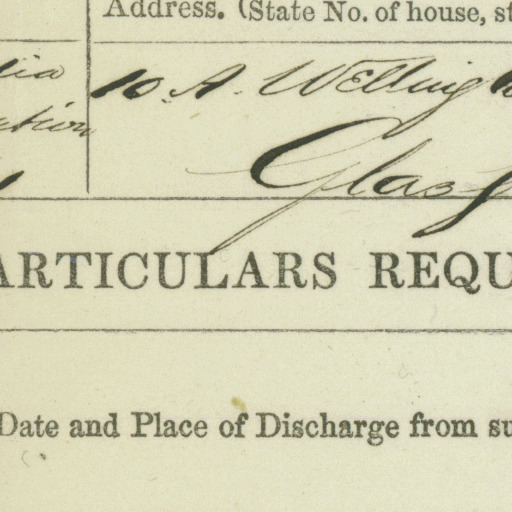 Address. (State No. of house, st
lia
10. A. Welling
ation
Glasg
ARTICULARS REQU
Date and Place of Discharge from su